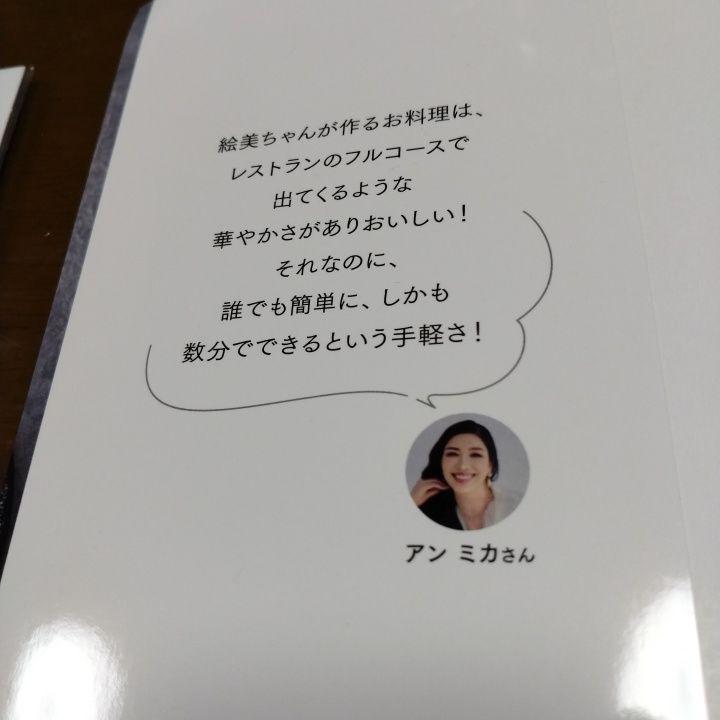 絵美ちゃんが作るお料理は、
レストランのフルコースで
出てくるような
華やかさがありおいしい！
それなのに、
誰でも簡単に、しかも
数分でできるという手軽さ！
アン ミカさん